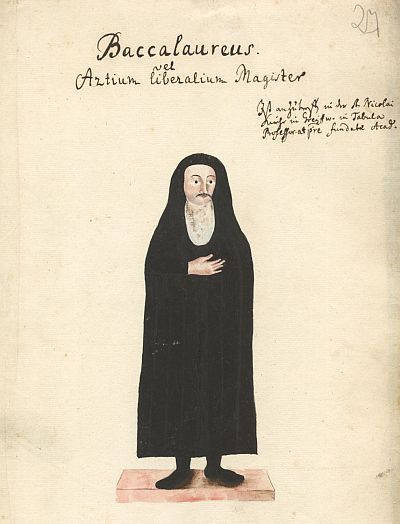 27
Baccalaureus.
vel
Artium liberalium Magister
Ist anzutreffen in der St. Nicolai
Kirch in Greifsw. in Tabula
Professorat pre fundatæ Acad.